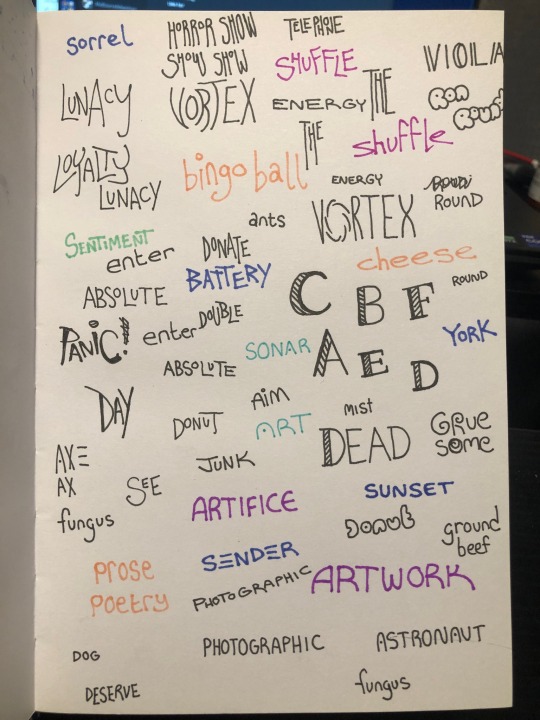 sorrel
HORROR SHOW
TELEPHONE
SHOW SHOW
SHUFFLE
VIOLA
LUNACY
VORTEX
ENERGY
THE
ROUND
THE
shuffle
LOYALTY
LUNACY
bingo ball
ENERGY
ROUND
ants
VORTEX
SENTIMENT
enter
DONATE
BATTERY
cheese
ABSOLUTE
C B F
ROUND
PANIC!
enter
DOUBLE
SONAR
A E D
YORK
ABSOLUTE
DAY
AIM
DONUT
ART
MIST
DEAD
GRUE
SOME
AXE
AX
SEE
JUNK
fungus
ARTIFICE
SUNSET
ground
beef
prose
SENDER
POETRY
PHOTOGRAPHIC
ARTWORK
DOG
PHOTOGRAPHIC
ASTRONAUT
DESERVE
fungus